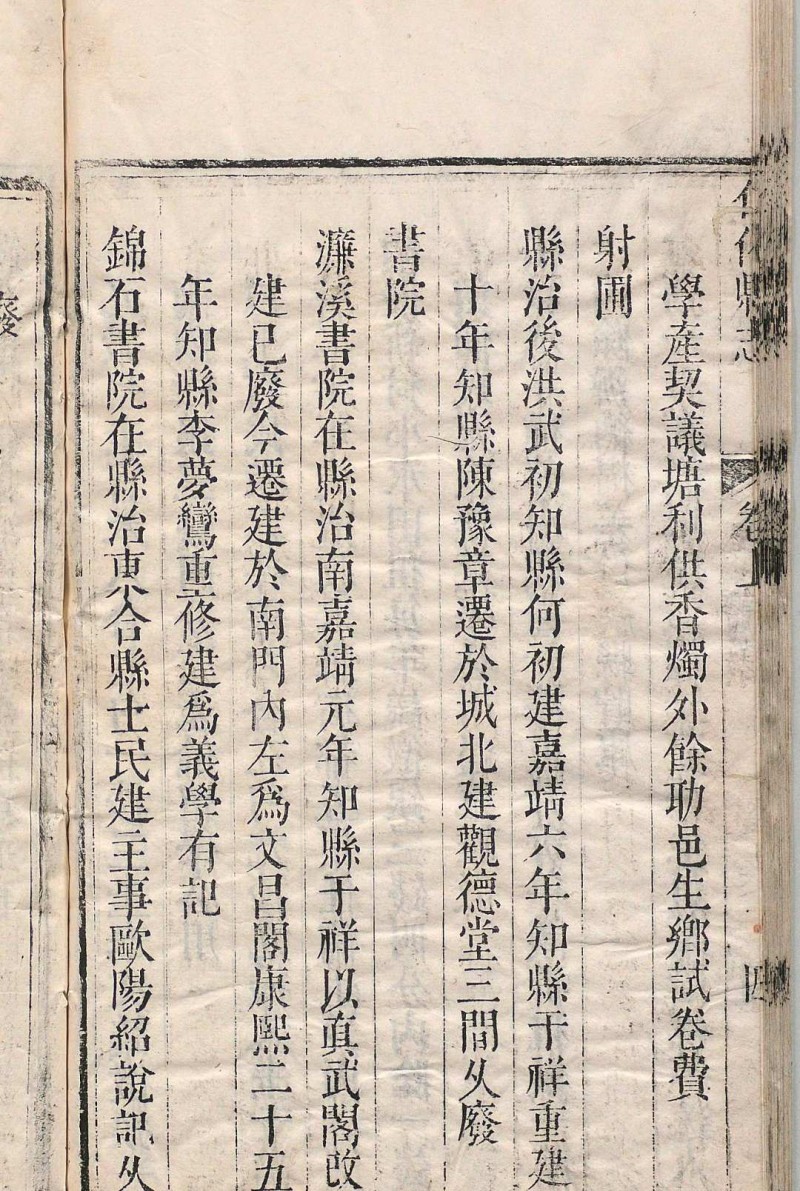 縣志 卷
四
學產契議塘利供香燭外餘助邑生鄉試卷費
射圃
縣治後洪武初知縣何初建嘉靖六年知縣于祥重建
十年知縣陳豫章遷於城北建觀德堂三間久廢
書院
濂溪書院在縣治南嘉靖元年知縣于祥以真武閣改
建已廢今遷建於南門內左為文昌閣康熙二十五
年知縣李夢鸞重修建為義學有記
錦石書院在縣治東合縣士民建主事歐陽紹說記久
廢